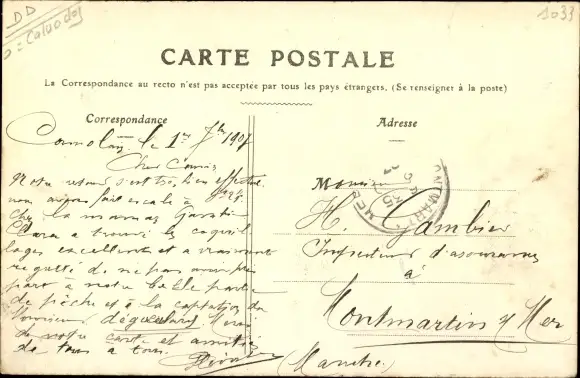 DD
= Calvados
1033
CARTE POSTALE
La Correspondance au recto n'est pas acceptée par tous les pays étrangers. (Se renseigner à la poste)
Correspondance
le 1er 7bre 1907
Cher
Notre retour s'est très bien effectué
nous avons fait escale à
chez la
a trouvé le coquil
lages excellents et a vraiment
regretté de ne pas avoir pris
part à notre belle partie
de pêche et à la captation du
Monsieur dégueulard. Merci
de votre carte et amitiés
de tous à tous.
Adresse
Monsieur
H. Gambier
Inspecteur d'assurances
à
Montmartin s/ Mer
(Manche)